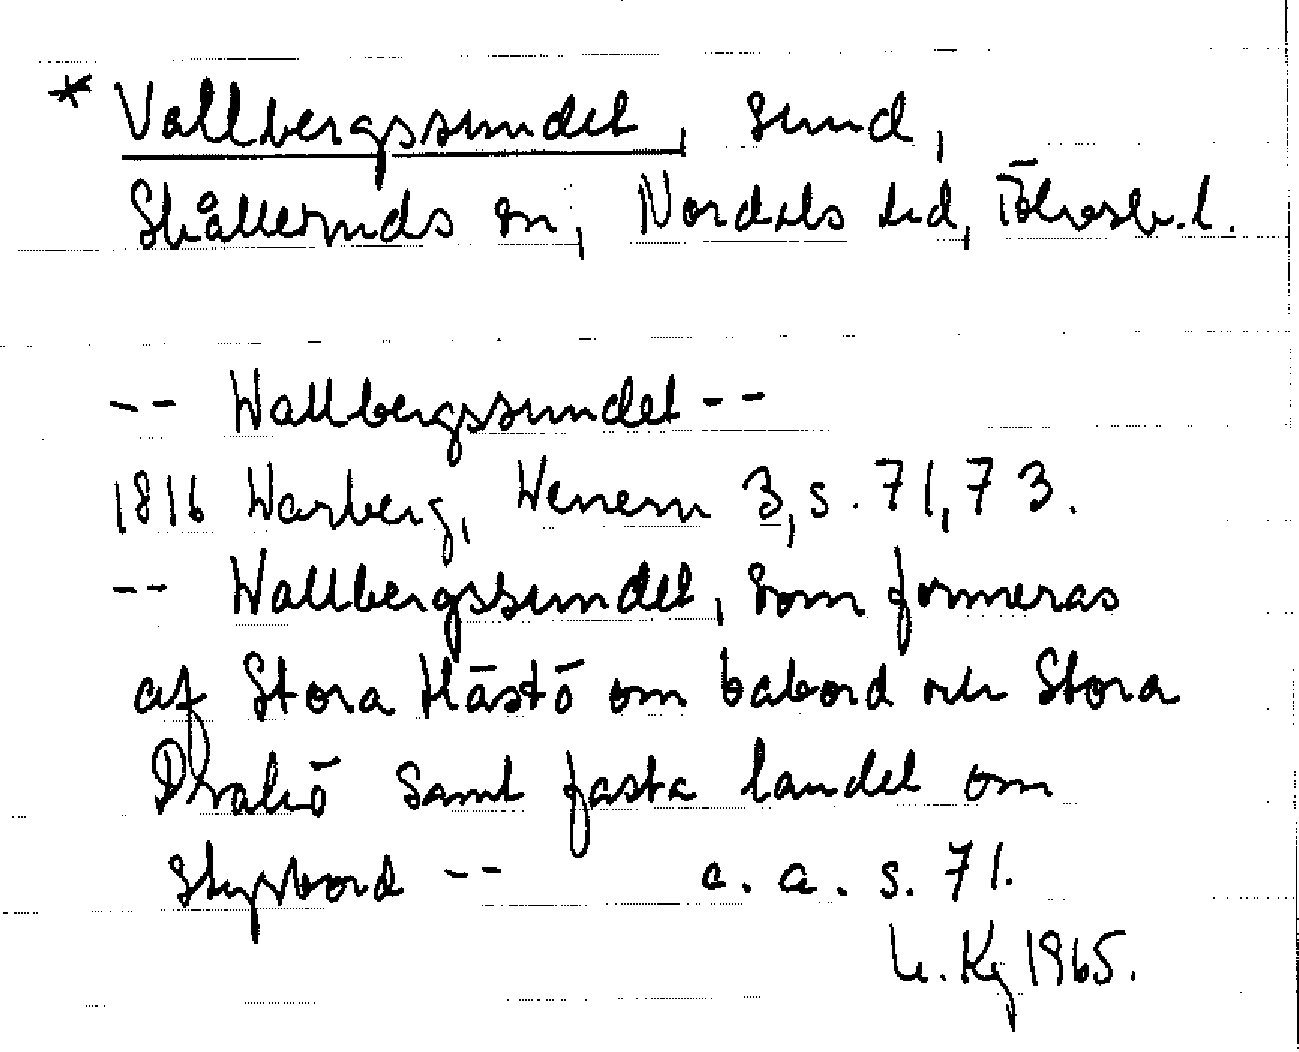 * Vallbergssundet, sund,
Skålleruds sn, Nordals hd, Älvsb. l.
-- Wallbergssundet --
1816 Warberg, Wenern 3, s. 71, 73.
-- Wallbergssundet, som formeras
af Stora Hästö om babord och Stora
Drakö samt fasta landet om
styrbord -- a. a. s. 71.
Kg 1965.